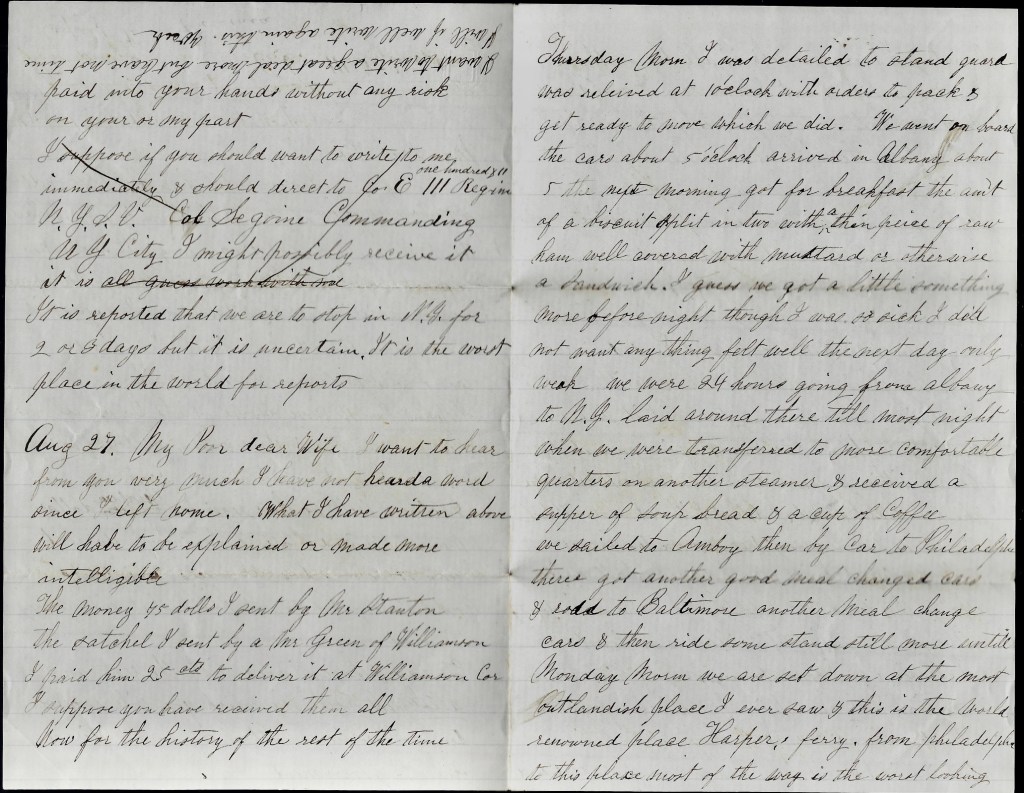 I want to write a great deal more but have not time
I will if well write again this week
paid into your hands without any risk
on your or my part
I suppose if you should want to write to me
immediately & should direct to Co. E 111 Regim
one hundred & 11
N.Y.S.V. Col Segoine Commanding
N Y City I might possibly receive it
it is all guess work with me
It is reported that we are to stop in N.Y. for
2 or 3 days but it is uncertain. It is the worst
place in the world for reports
Aug 27. My Poor dear Wife I want to hear
from you very much I have not heard a word
since I left home. What I have written above
will have to be explained or made more
intelligible
The money 45 dolls I sent by Mr Stanton
the satchel I sent by a Mr Green of Williamson
I paid him 25 cts to deliver it at Williamson Cor
I suppose you have received them all
Now for the history of the rest of the time
Thursday Morn I was detailed to stand guard
was releived at 1 o'clock with orders to pack &
get ready to move which we did. We went on board
the cars about 5 o'clock arrived in Albany about
5 the next morning got for breakfast the am't
of a biscuit split in two with a thin peice of raw
ham well covered with mustard or otherwise
a Sandwich. I guess we got a little something
more before night though I was so sick I did
not want any thing felt well the next day only
weak we were 24 hours going from albany
to N.Y. laid around there till most night
when we were transferred to more comfortable
quarters on another steamer & received a
supper of soup bread & a cup of Coffee
we sailed to Amboy then by Car to Philadelphi
there got another good meal changed cars
& rode to Baltimore another meal change
cars & then ride some stand still more untill
Monday Morn we are set down at the most
Outlandish place I ever saw & this is the world
renowned place Harpers ferry. from philadelphi
to this place most of the way is the worst looking